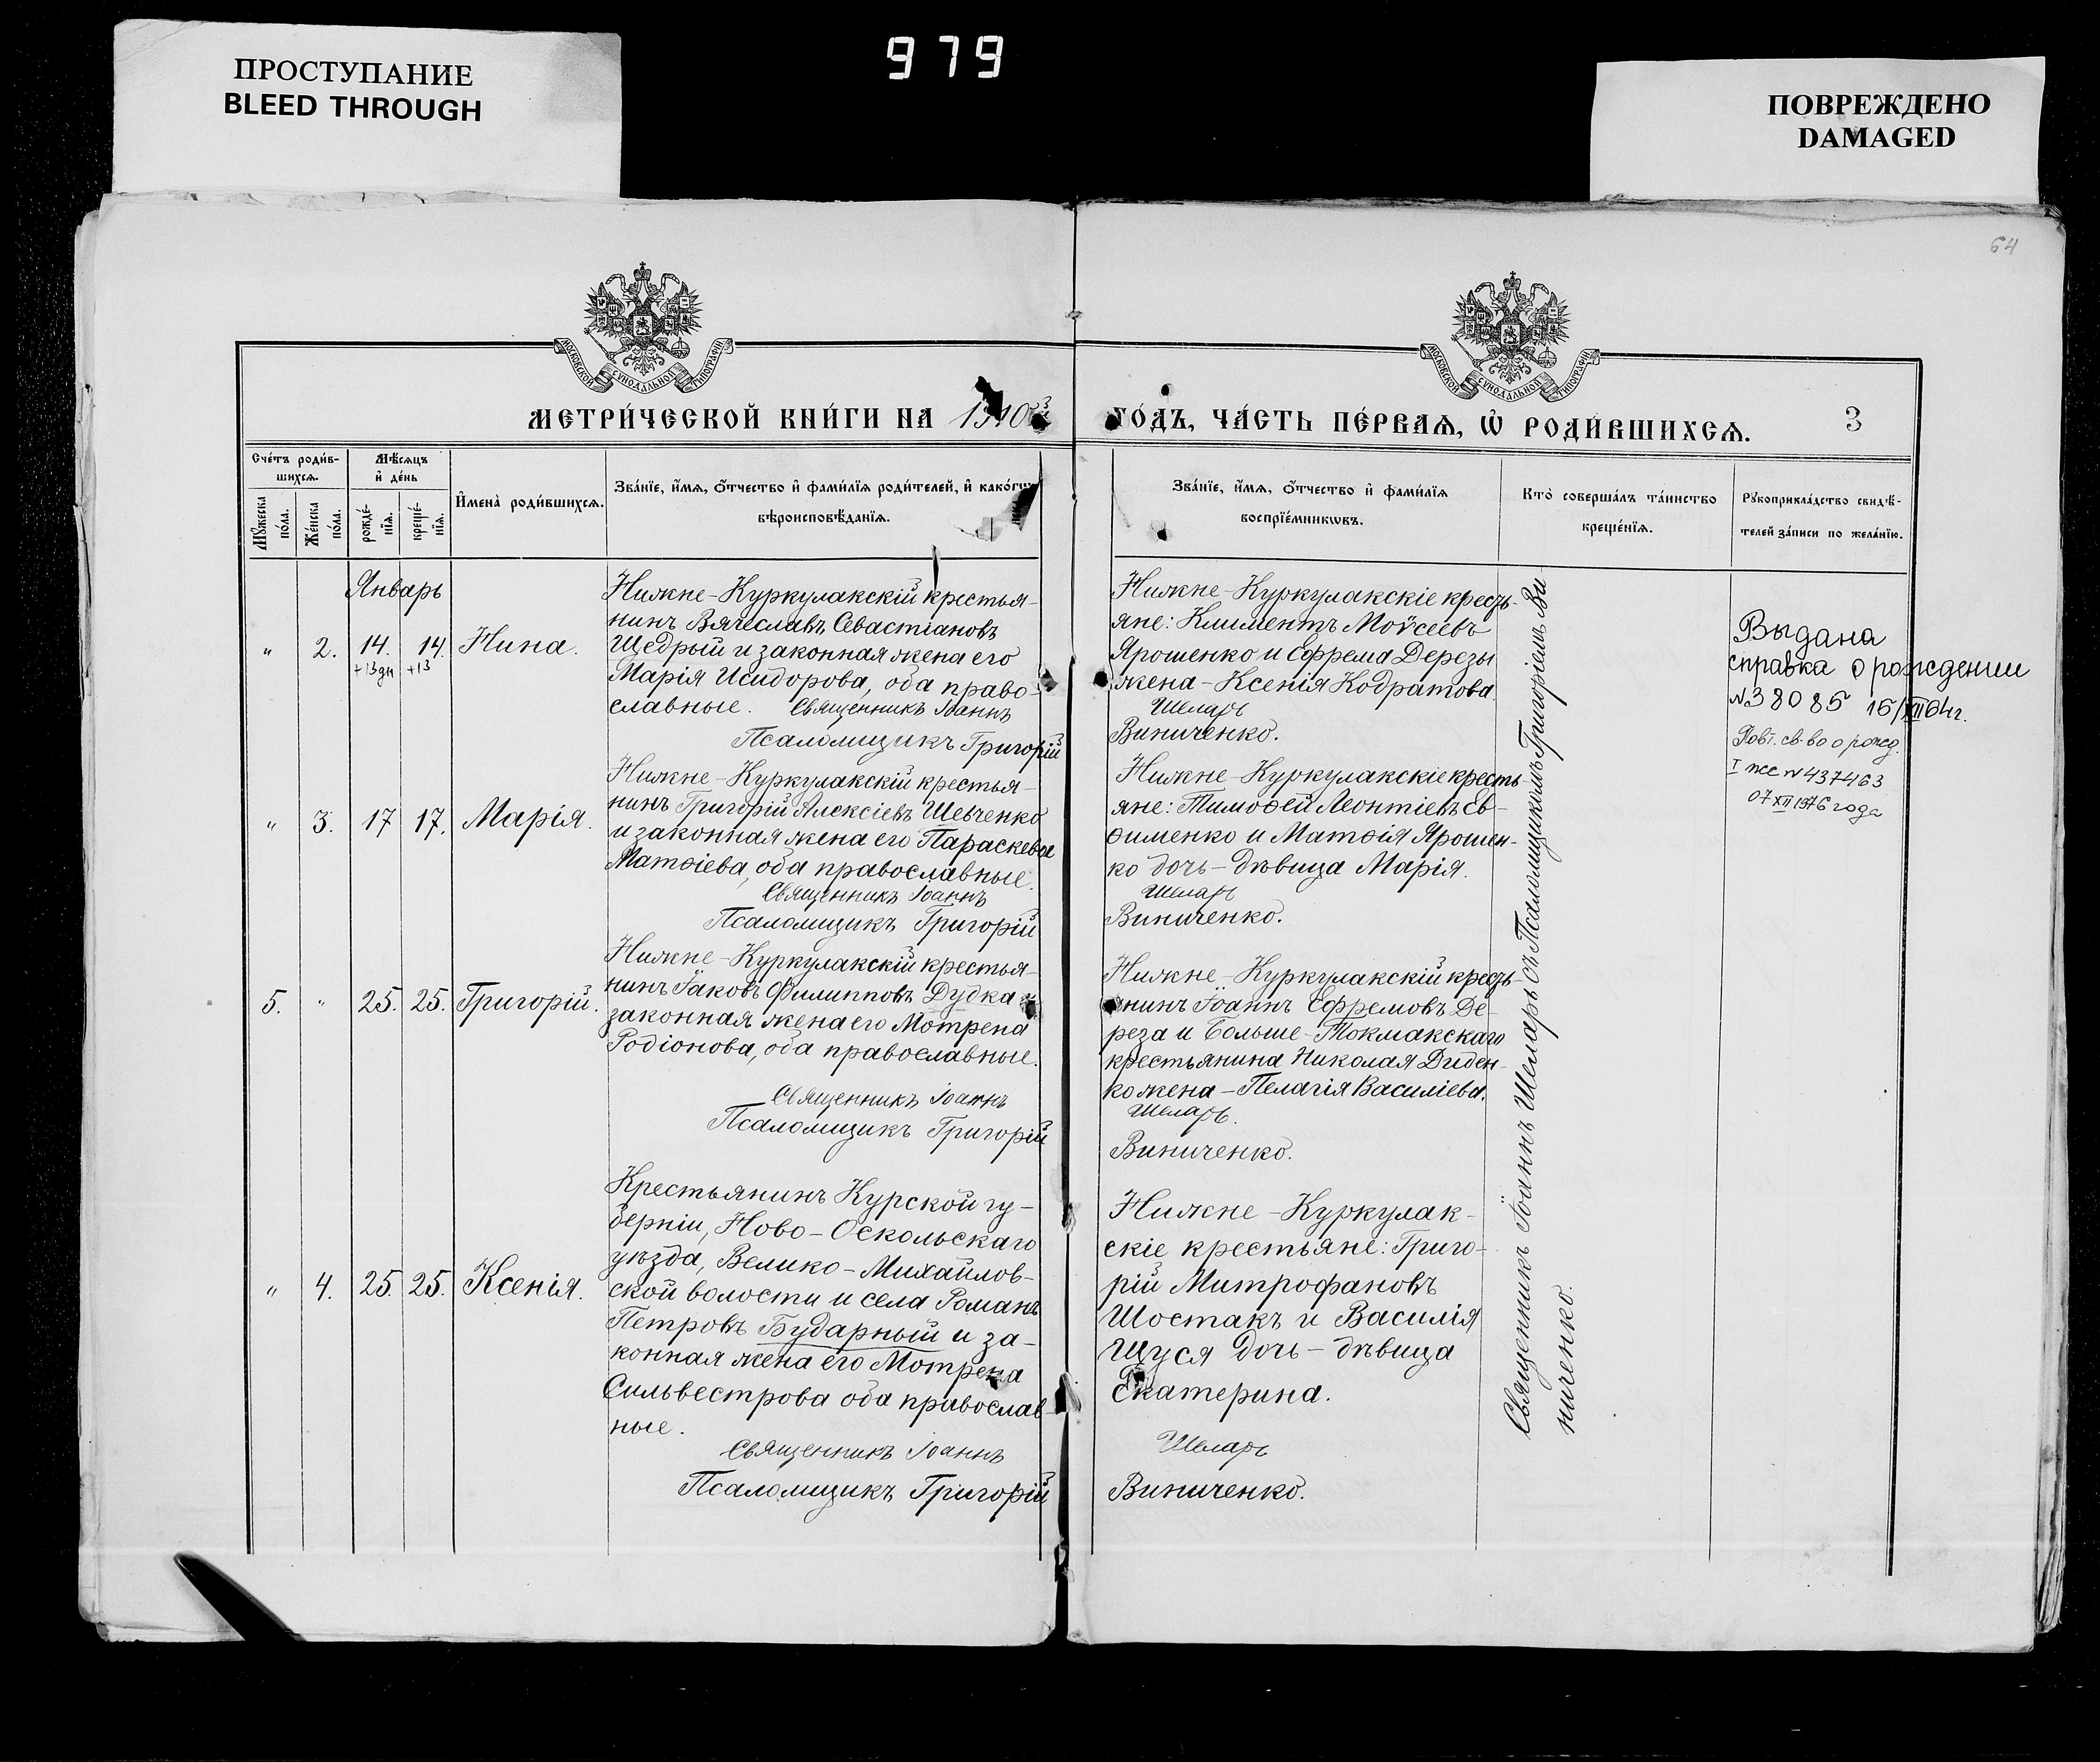 ПРОСТУПАНИЕ
BLEED THROUGH
979
ПОВРЕЖДЕНО
DAMAGED
64
МОСКОВСКОЙ СѴНОДАЛЬНОЙ ТИПОГРАФІИ
МОСКОВСКОЙ СѴНОДАЛЬНОЙ ТИПОГРАФІИ
МЕТРИ́ЧЕСКОЙ КНИ́ГИ НА 1910
ГО́ДЪ, ЧА́СТЬ ПЕ́РВАѦ, Ѽ РОДИ́ВШИХСѦ.
3
Сче́тъ роди́в-
шихсѧ.
Мꙋ́жеска
по́ла.
Же́нска
по́ла.
Мѣ́сѧцъ
и҆ де́нь
рожде́-
нїѧ.
креще́-
нїѧ.
И҆мена̀ роди́вшихсѧ.
Зва́нїе, и҆́мѧ, ѻ҆́тчество и҆ фами́лїѧ роди́телей, и҆ како́гѡ
вѣроисповѣ́данїѧ.
Зва́нїе, и҆́мѧ, ѻ҆́тчество и҆ фами́лїѧ
воспрїе́мникѡвъ.
Кто̀ соверша́лъ та́инство
креще́нїѧ.
Рꙋкоприкла́дство свидѣ́-
телей за́писи по жела́нїю.
Январь
" 2. 14. 14. Нина.
+13дн +13
Нижне-Куркулакскій крестья-
нинъ Вячеславъ Севастіановъ
Щедрый и законная жена его
Марія Исидорова, оба право-
славные. Священникъ Іоаннъ
Псаломщикъ Григорій
Нижне-Куркулакскіе кресть-
яне: Климентъ Моѵсеевъ
Ярошенко и Ефрема Дерезы
жена - Ксенія Кодратова
Шеларь
Виниченко.
Выдана
справка о рождении
№38085 16/XII 64г.
Повт. св-во о рожд.
I ЖС №437463
07 XII 1976 года
" 3. 17 17. Марія.
Нижне-Куркулакскій крестья-
нинъ Григорій Алексіевъ Шевченко
и законная жена его Параскева
Матѳіева, оба православные.
Священникъ Іоаннъ
Псаломщикъ Григорій
Нижне-Куркулакскіе кресть-
яне: Тимоѳей Леонтіевъ Ев-
ѳименко и Матѳія Ярошен-
ко дочь - дѣвица Марія.
Шеларь
Виниченко.
5. " 25. 25. Григорій.
Нижне-Куркулакскій крестья-
нинъ Іаковъ Филипповъ Дудка и
законная жена его Мотрена
Родіонова, оба православные.
Священникъ Іоаннъ
Псаломщикъ Григорій
Нижне-Куркулакскій кресть-
янинъ Іоаннъ Ефремовъ Де-
реза и Больше-Токмакскаго
крестьянина Николая Диден-
ко жена - Пелагія Василіева.
Шеларь.
Виниченко.
" 4. 25. 25. Ксенія.
Крестьянинъ Курской гу-
берніи, Ново-Оскольскаго
уѣзда, Велико-Михайлов-
ской волости и села Романъ
Петровъ Бударный и за-
конная жена его Мотрена
Сильвестрова оба православ-
ные.
Священникъ Іоаннъ
Псаломщикъ Григорій
Нижне-Куркулак-
скіе крестьяне: Григо-
рій Митрофановъ
Шостакъ и Василія
Щуся дочь - дѣвица
Екатерина.
Шеларь
Виниченко.
Священникъ Іоаннъ Шеларь съ Псаломщикомъ Григоріемъ Ви-
ниченко.